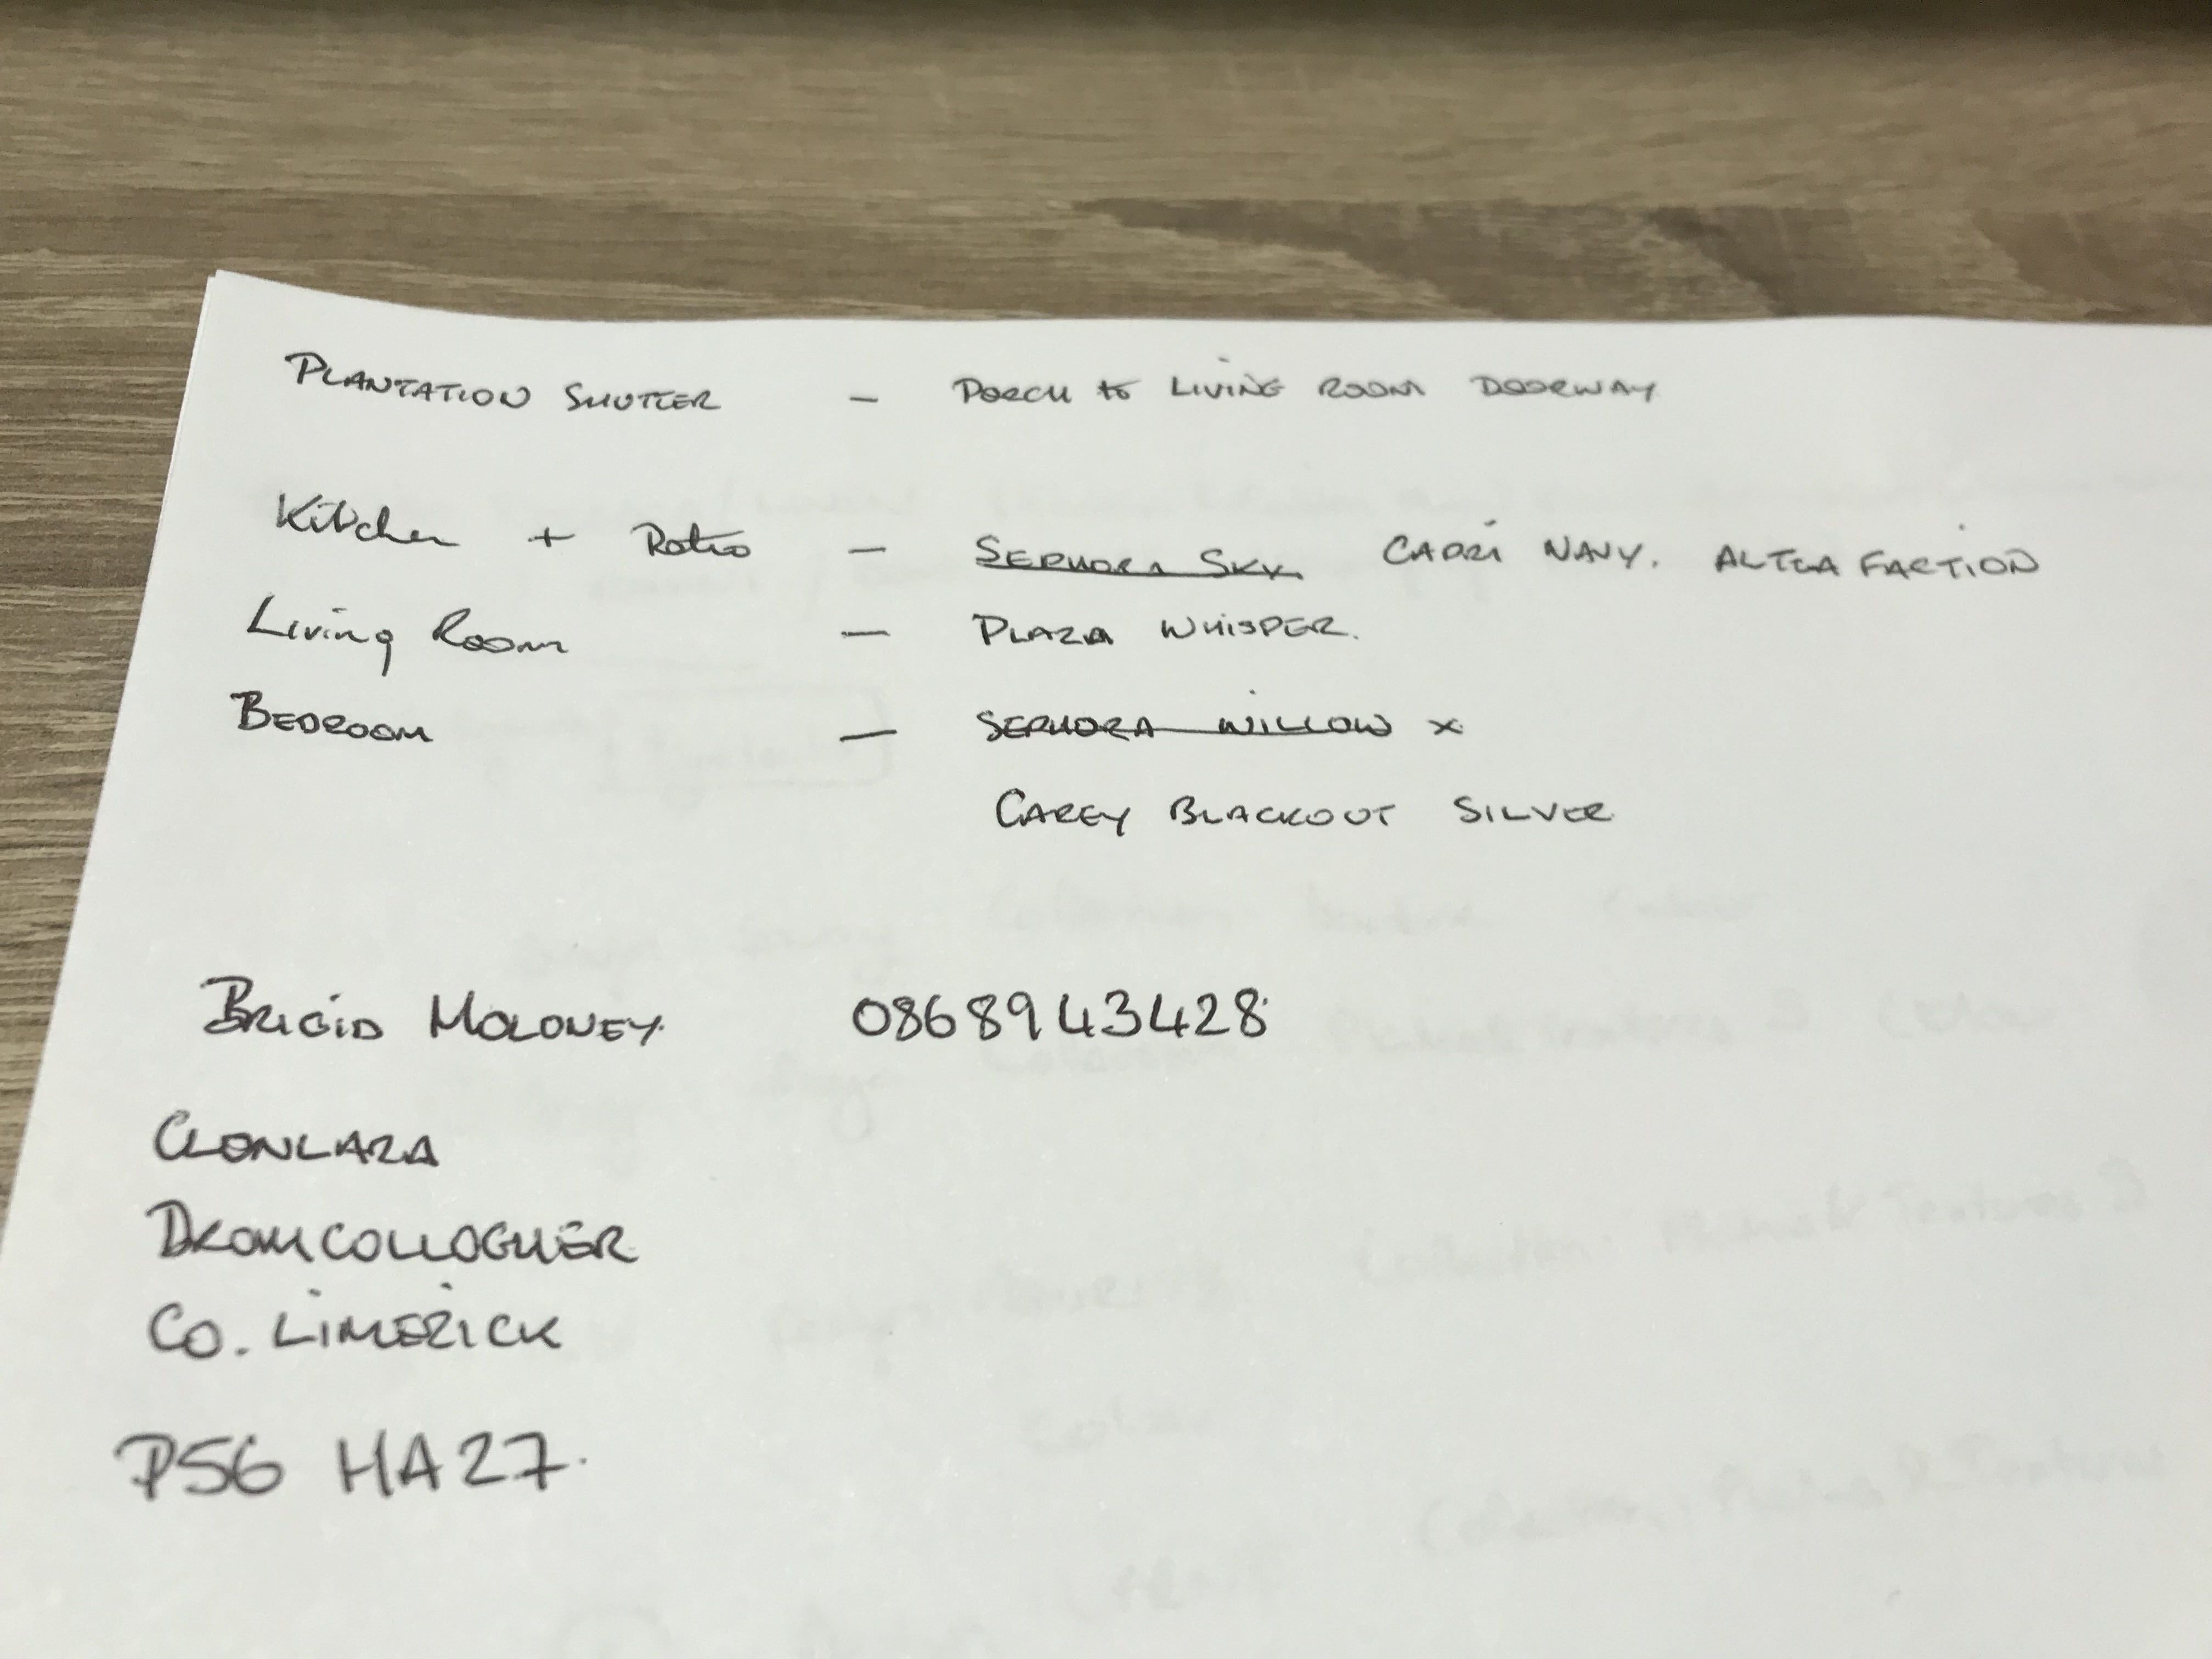 PLANTATION SHUTTER - PORCH to LIVING ROOM DOORWAY
Kitchen + Patio - SEPHORA SKY CAPRI NAVY. ALTEA FACTION
Living Room - PLAZA WHISPER.
BEDROOM - SEPHORA WILLOW x
CAREY BLACKOUT SILVER
BRIGID MOLONEY 0868943428
CLONLARA
DROMCOLLOGHER
CO. LIMERICK
P56 HA27.